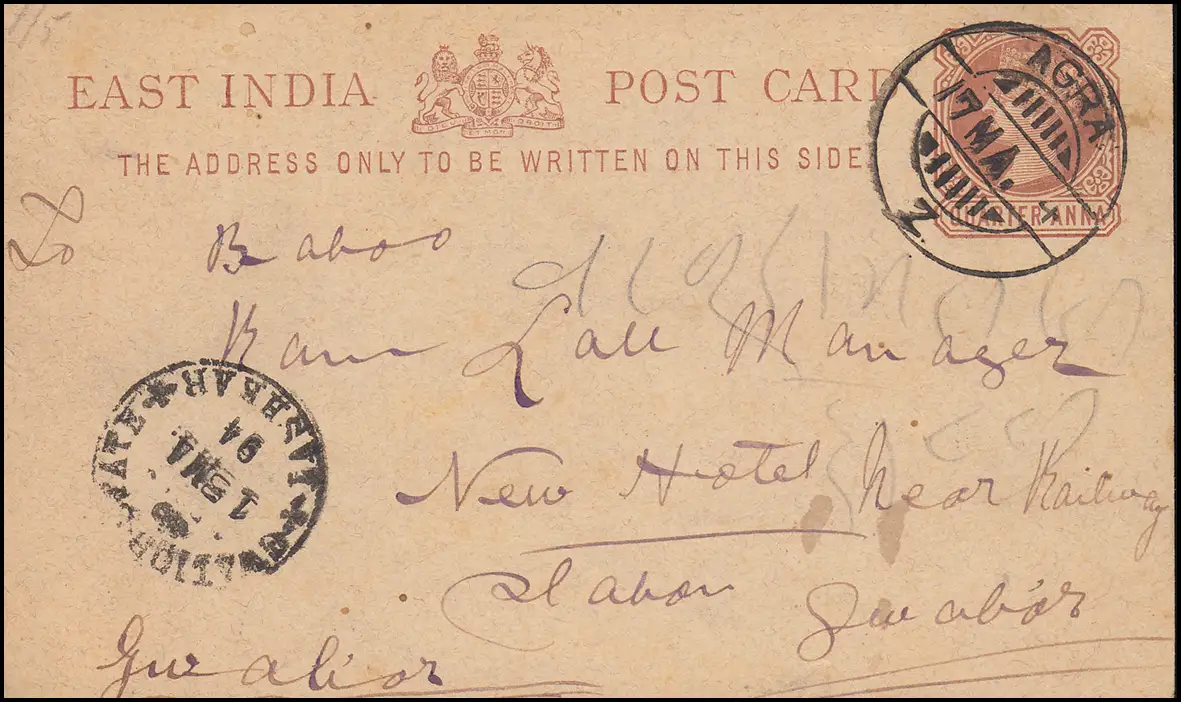 EAST INDIA POST CARD
THE ADDRESS ONLY TO BE WRITTEN ON THIS SIDE.
AGRA
17 MA.
Z.
QUARTER ANNA
To
Baboo
Ram Lall Manager
New Hotel Near Railway
Station Gwalior
Gwalior
LASHKAR
94
MA
GWALIOR STATE